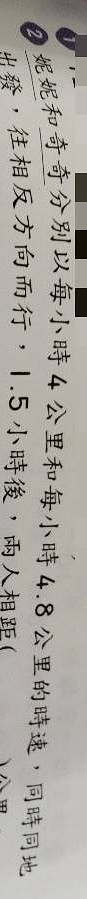 ❷ 妮妮和奇奇分別以每小時4公里和每小時4.8公里的時速，同時同地
出發，往相反方向而行，1.5小時後，兩人相距(
)公里